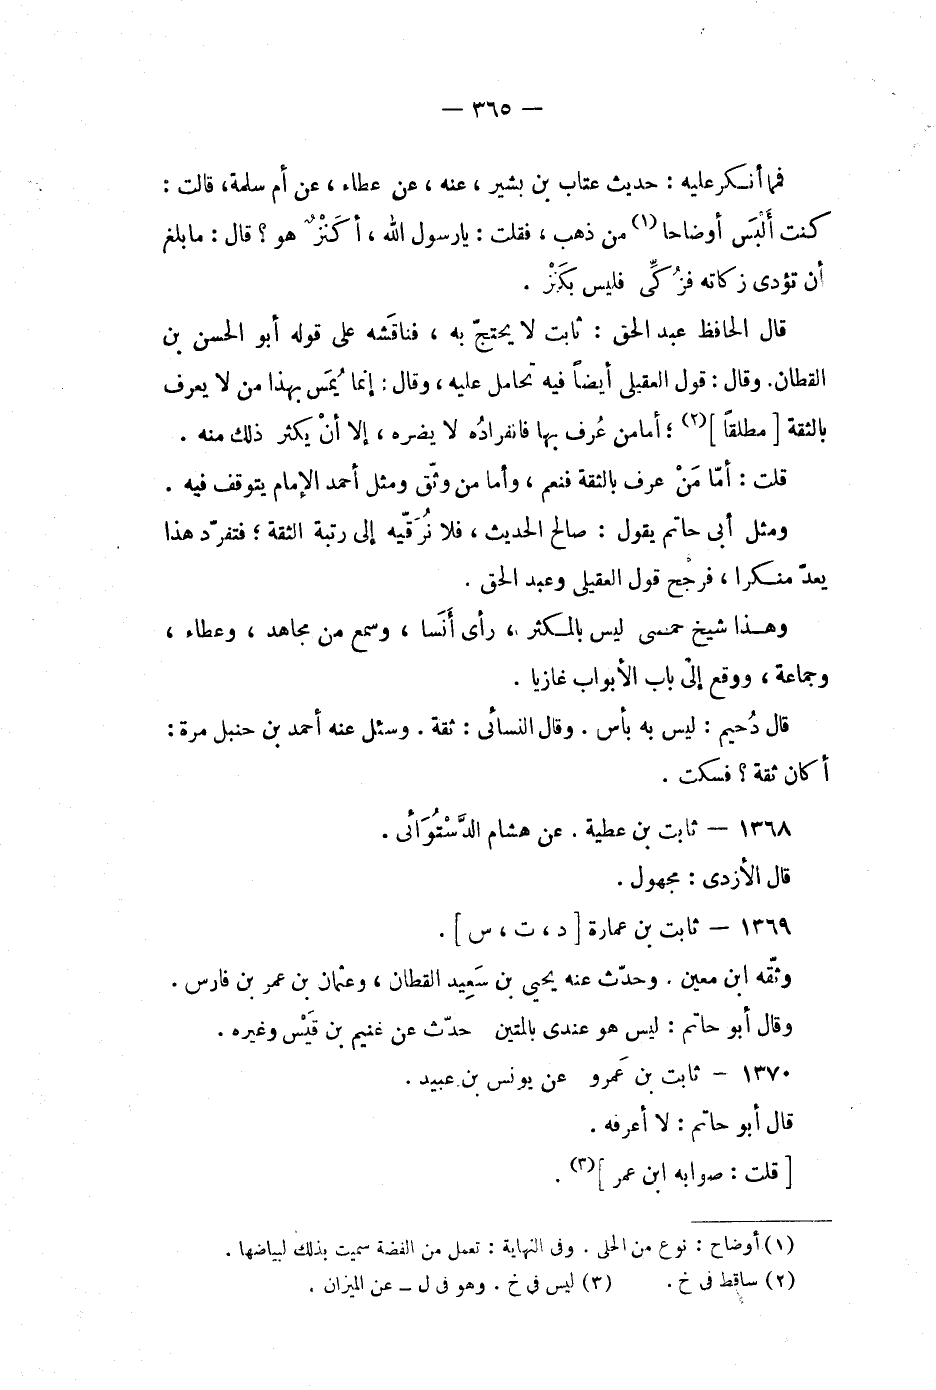 — ٣٦٥ —
فما أنكر عليه : حديث عتاب بن بشير ، عنه ، عن عطاء ، عن أم سلمة، قالت :
كنت أَلْبَس أوضاحا (١) من ذهب ، فقلت : يارسول الله ، أكَنْزٌ هو ؟ قال : ما بلغ
أن تؤدى زكاته فزُكِّى فليس بكَنْز .
قال الحافظ عبد الحق : ثابت لا يحتجّ به ، فناقَشه على قوله أبو الحسن بن
القطان. وقال : قول العقيلى أيضاً فيه تحامل عليه ، وقال : إنما يُمَس بهذا من لا يعرف
بالثقة [ مطلقاً ](٢) ؛ أما من عُرف بها فانفرادُه لا يضره ، إلا أنْ يكثر ذلك منه .
قلت : أمّا مَنْ عرف بالثقة فنعم ، وأما من وثّق ومثل أحمد الإمام يتوقف فيه .
ومثل أبى حاتم يقول : صالح الحديث ، فلا نُرَقّيه إلى رتبة الثقة ؛ فتفرّد هذا
يعدّ منكرا ، فرجُح قول العقيلى وعبد الحق .
وهذا شيخ حمصى ليس بالمكثر ، رأى أَنَسا ، وسمع من مجاهد ، وعطاء ،
وجماعة ، ووقع إلىّ باب الأبواب غازيا .
قال دُحيم : ليس به بأس . وقال النسائى : ثقة . وسئل عنه أحمد بن حنبل مرة :
أكان ثقة ؟ فسكت .
١٣٦٨ — ثابت بن عطية . عن هشام الدَّسْتُوَائى .
قال الأزدى : مجهول .
١٣٦٩ — ثابت بن عمارة [ د ، ت ، س ] .
وثّقه ابن معين . وحدّث عنه يحيى بن سَعِيد القطان ، وعثمان بن عمر بن فارس .
وقال أبو حاتم : ليس هو عندى بالمتين حدّث عن غنيم بن قَيْس وغيره .
١٣٧٠ – ثابت بن عَمرو عن يونس بن عبيد .
قال أبو حاتم : لا أعرفه .
[ قلت : صوابه ابن عمر ](٣) .
(١) أوضاح : نوع من الحلى . وفى النهاية : تعمل من الفضة سميت بذلك لبياضها .
(٢) ساقط فى خ . (٣) ليس في خ . وهو فى ل ــ عن الميزان .